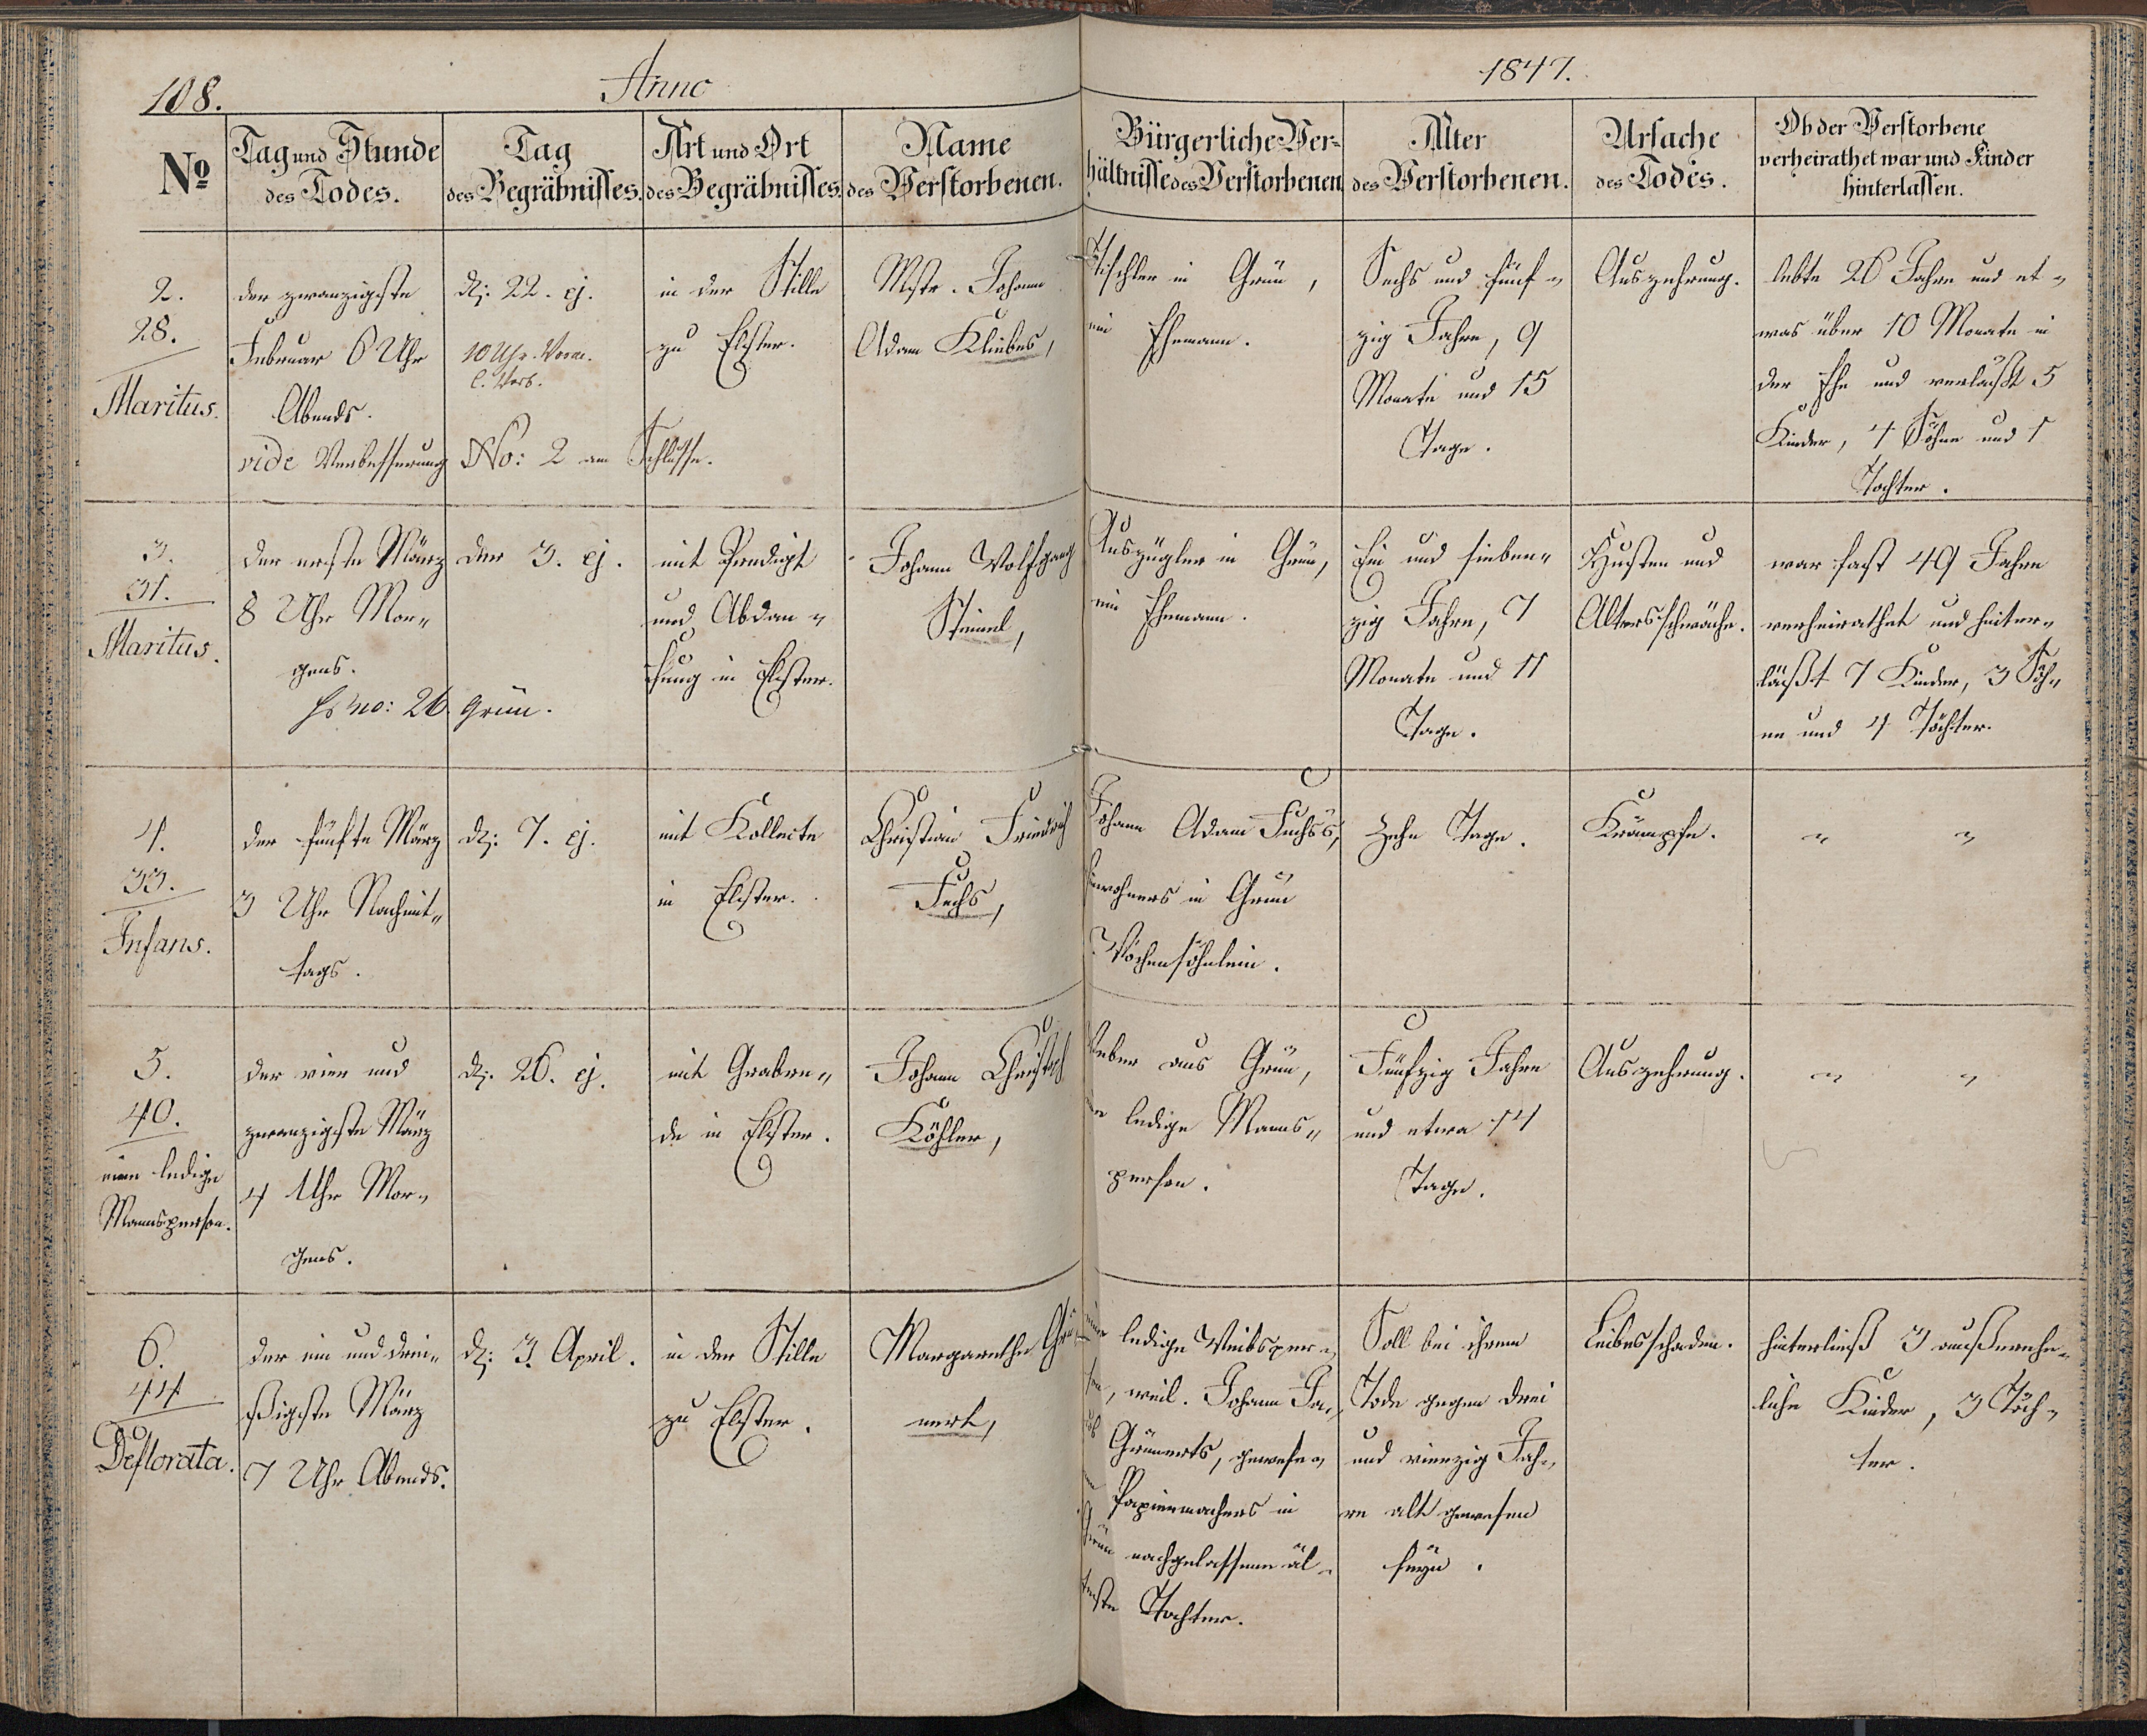 108.
Anno
1847.
No
Tag und Stunde
des Todes.
Tag
des Begräbnisses.
Art und Ort
des Begräbnisses.
Name
des Verstorbenen.
Bürgerliche Ver=
hältnisse des Verstorbenen
Alter
des Verstorbenen.
Ursache
des Todes.
Ob der Verstorbene
verheirathet war und Kinder
hinterlassen.
2.
28.
Maritus.
der zwanzigste
Februar 6 Uhr
Abends.
vide Verbesserung No: 2 am Schlusse.
d. 22. ej.
10 Uhr Vorm.
in der Stille
zu Elster.
Mstr. Johann
Adam Kliebes,
Tischler in Grün,
ein Ehemann.
Sechs und fünf-
zig Jahre, 9
Monate und 15
Tage.
Auszehrung.
lebte 26 Jahre und et-
was über 10 Monate in
der Ehe und verläßt 5
Kinder, 4 Söhne und 1
Tochter.
3.
31.
Maritus.
der erste März
8 Uhr Mor-
gens.
Hs no: 26 Grün.
den 3. ej.
mit Predigt
und Abdan-
kung in Elster.
Johann Wolfgang
Steinel,
Auszügler in Grün,
ein Ehemann.
Ein und sieben-
zig Jahre, 7
Monate und 11
Tage.
Husten und
Altersschwäche.
war fast 49 Jahre
verheirathet und hinter-
läßt 7 Kinder, 3 Söh-
ne und 4 Töchter.
4.
33.
Infans.
der fünfte März
3 Uhr Nachmit-
tags.
d. 7. ej.
mit Kollecte
in Elster.
Christian Friedrich
Fuchs,
Johann Adam Fuchs's,
Einwohners in Grün
Wochensöhnlein.
Zehn Tage.
Krämpfe.
" "
5.
40.
eine ledige
Mannsperson.
der vier und
zwanzigste März
4 Uhr Mor-
gens.
d. 26. ej.
mit Grabre-
de in Elster.
Johann Christoph
Köhler,
Weber aus Grün,
eine ledige Manns-
person.
Fünfzig Jahre
und etwa 14
Tage.
Auszehrung.
" "
6.
44
Deflorata.
der ein und drei-
ßigste März
7 Uhr Abends.
d. 3. April.
in der Stille
zu Elster.
Margarethe Grü-
nert,
eine ledige Weibsper-
son, weil. Johann Ja-
kob Grünerts, gewese-
nen Papiermachers in
Grün nachgelassene äl-
teste Tochter.
Soll bei ihrem
Tode gegen drei
und vierzig Jah-
re alt gewesen
seyn.
Leibesschaden.
hinterließ 3 außerehe-
liche Kinder, 3 Töch-
ter.